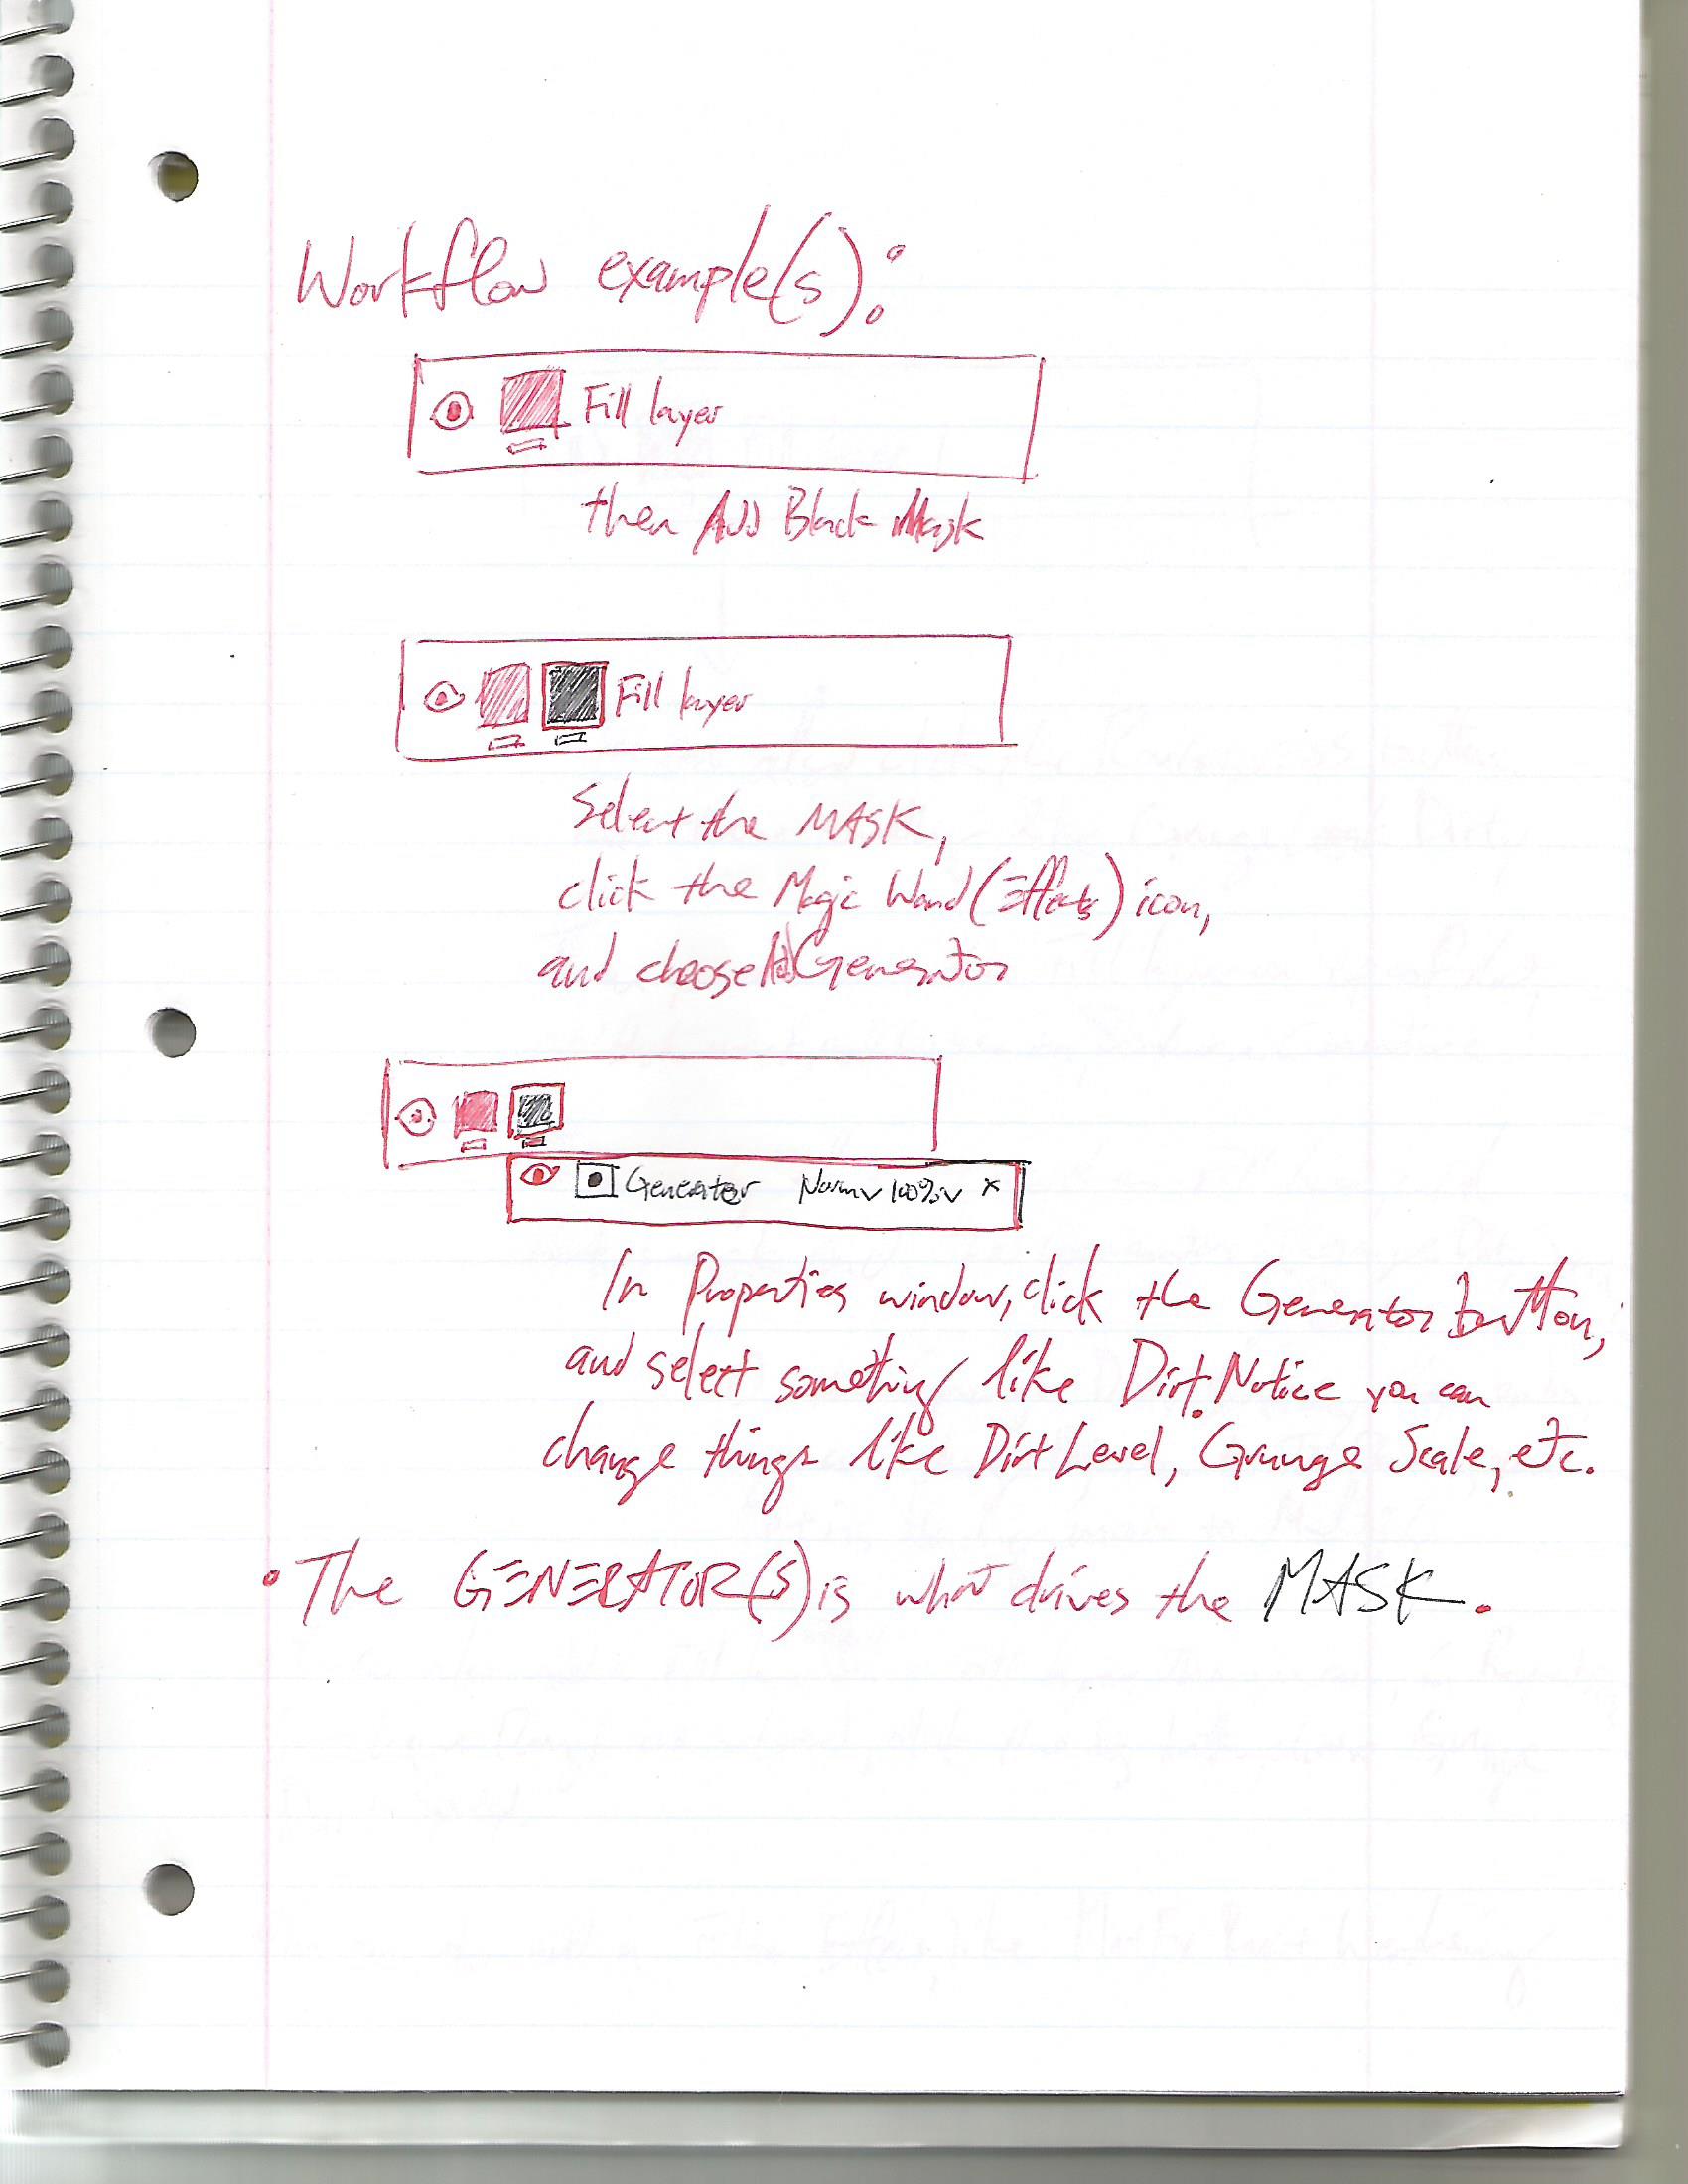 Workflow example(s):
Fill layer
then Add Black Mask
Fill layer
Select the MASK,
click the Magic Wand (Effects) icon,
and choose Add Generator
Generator Norm v 100% v x
In Properties window, click the Generator button,
and select something like Dirt. Notice you can
change things like Dirt Level, Grunge Scale, etc.
• The GENERATOR(S) is what drives the MASK.